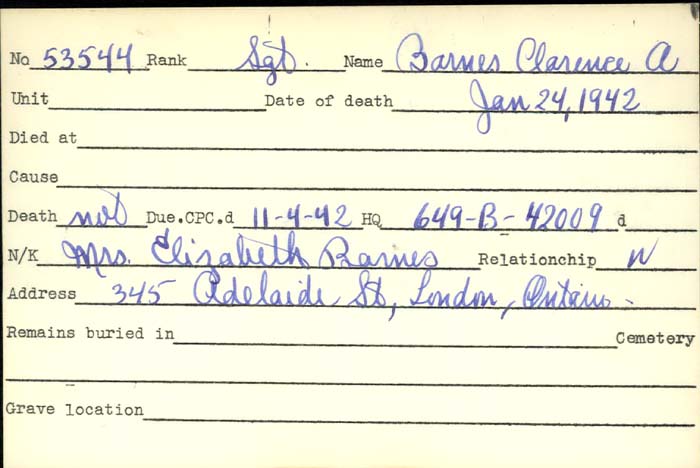 No 53544 Rank Sgt. Name Barnes Clarence A
Unit Date of death Jan 24, 1942
Died at
Cause
Death not Due.CPC.d 11-4-42 HQ 649-B-42009 d
N/K Mrs. Elizabeth Barnes Relationship W
Address 345 Adelaide St, London, Ontario.
Remains buried in Cemetery
Grave location